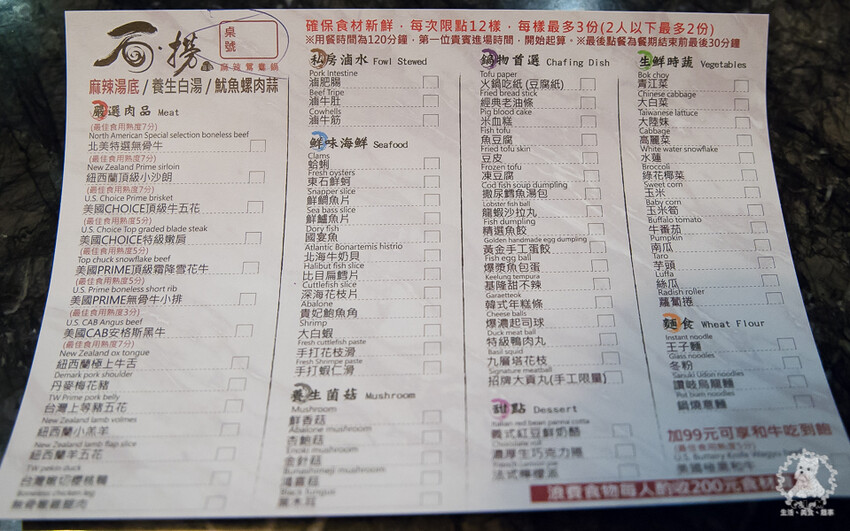 石·撈
桌號
麻辣鴛鴦鍋
確保食材新鮮，每次限點12樣，每樣最多3份(2人以下最多2份)
※用餐時間為120分鐘，第一位貴賓進場時間，開始起算。※最後點餐為餐期結束前最後30分鐘
麻辣湯底 / 養生白湯 / 魷魚螺肉蒜
嚴選肉品 Meat
(最佳食用熟度7分)
North American Special selection boneless beef
北美特選無骨牛
(最佳食用熟度7分)
New Zealand Prime sirloin
紐西蘭頂級小沙朗
(最佳食用熟度7分)
U.S. Choice Prime brisket
美國CHOICE頂級牛五花
(最佳食用熟度5分)
U.S. Choice Top graded blade steak
美國CHOICE特級嫩肩
(最佳食用熟度5分)
Top chuck snowflake beef
美國PRIME頂級霜降雪花牛
(最佳食用熟度5分)
U.S. Prime boneless short rib
美國PRIME無骨牛小排
(最佳食用熟度3分)
U.S. CAB Angus beef
美國CAB安格斯黑牛
(最佳食用熟度7分)
New Zealand ox tongue
紐西蘭極上牛舌
Demark pork shoulder
丹麥梅花豬
TW Prime pork belly
台灣上等豬五花
New Zealand lamb volmes
紐西蘭小羔羊
New Zealand lamb flap slice
紐西蘭羊五花
TW pekin duck
台灣嫩切櫻桃鴨
Boneless chicken leg
無骨嫩雞腿肉
私房滷水 Fowl Stewed
Pork Intestine
滷肥腸
Beef Tripe
滷牛肚
Cowhells
滷牛筋
鮮味海鮮 Seafood
Clams
蛤蜊
Fresh oysters
東石鮮蚵
Snapper slice
鮮鯛魚片
Sea bass slice
鮮鱸魚片
Dory fish
國宴魚
Atlantic Bonartemis histrio
北海牛奶貝
Halibut fish slice
比目扁鱈片
Cuttlefish slice
深海花枝片
Abalone
貴妃鮑魚角
Shrimp
大白蝦
Fresh cuttlefish paste
手打花枝滑
Fresh Shrimpe paste
手打蝦仁滑
養生菌菇 Mushroom
Mushroom
鮮香菇
Abalone mushroom
杏鮑菇
Enoki mushroom
金針菇
Bunashimeji mushroom
鴻喜菇
Black fungus
黑木耳
鍋物首選 Chafing Dish
Tofu paper
火鍋吃紙 (豆腐紙)
Fried bread stick
經典老油條
Pig blood cake
米血糕
Fish tofu
魚豆腐
Fried tofu skin
豆皮
Frozen tofu
凍豆腐
Cod fish soup dumpling
撒尿鱈魚湯包
Lobster fish ball
龍蝦沙拉丸
Fish dumpling
精選魚餃
Golden handmade egg dumpling
黃金手工蛋餃
Fish egg ball
爆漿魚包蛋
Keelung tempura
基隆甜不辣
Garaetteok
韓式年糕條
Cheese balls
爆濃起司球
Duck meat ball
特級鴨肉丸
Basil squid
九層塔花枝
Signature meatball
招牌大貢丸(手工限量)
甜點 Dessert
Italian red bean panna cotta
義式紅豆鮮奶酪
Chocolate roll
濃厚生巧克力捲
French Lemon pie
法式檸檬派
生鮮時蔬 Vegetables
Bok choy
青江菜
Chinese cabbage
大白菜
Taiwanese lettuce
大陸妹
Cabbage
高麗菜
White water snowflake
水蓮
Broccoli
綠花椰菜
Sweet corn
玉米
Baby corn
玉米筍
Buffalo tomato
牛番茄
Pumpkin
南瓜
Taro
芋頭
Luffa
絲瓜
Radish roller
蘿蔔捲
麵食 Wheat Flour
Instant noodle
王子麵
Glass noodles
冬粉
Sanuki Udon noodles
讚岐烏龍麵
Pot burn noodles
鍋燒意麵
加99元可享和牛吃到飽
(最佳食用熟度5分)
美國極黑和牛
浪費食物每人酌收200元食材
生活、美食、趣事